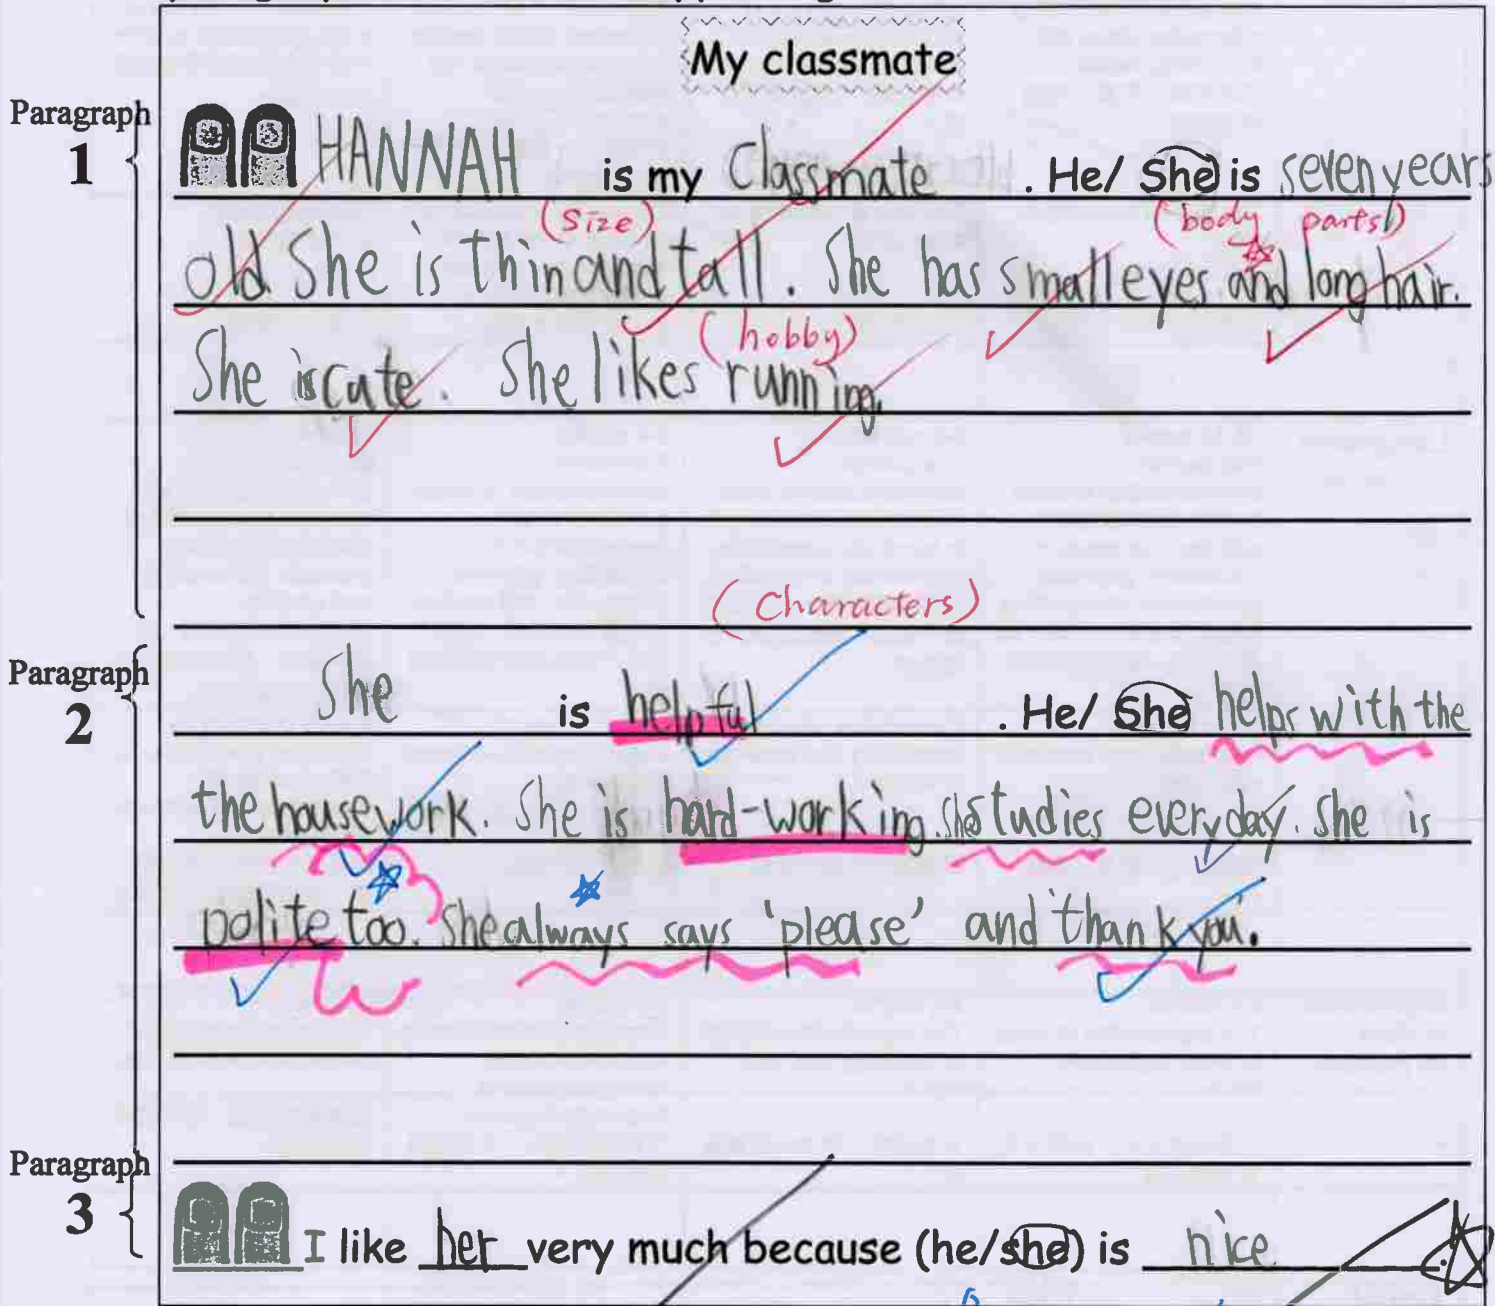 My classmate
Paragraph
1
HANNAH is my Classmate. He/ She is seven years
(size) (body parts)
old She is thin and tall. She has small eyes and long hair.
(hobby)
She is cute. She likes running.
(Characters)
Paragraph
2
She is helpful. He/ She helps with the
the housework. She is hard-working. she studies every day. She is
polite too. She always says 'please' and 'thank you'.
Paragraph
3
I like her very much because (he/she) is nice.